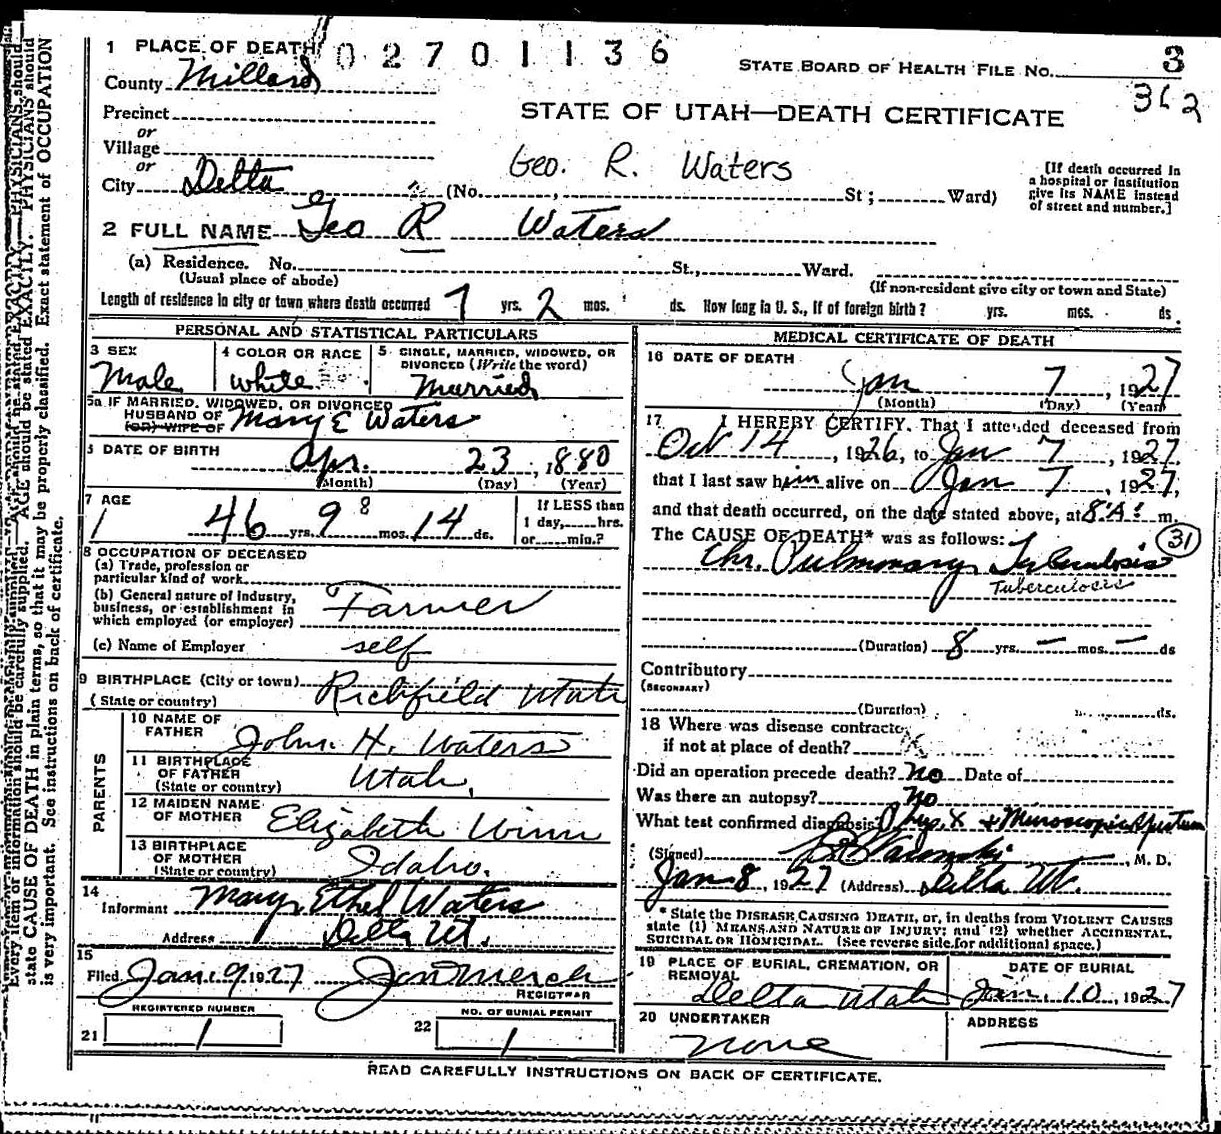 1 PLACE OF DEATH 02701136 3
County Millard STATE BOARD OF HEALTH FILE NO. 362
Precinct STATE OF UTAH—DEATH CERTIFICATE
or
Village
or Geo. R. Waters
City Delta (No. , St; Ward)
[If death occurred in
a hospital or institution
give its NAME instead
of street and number.]
2 FULL NAME Geo R Waters
(a) Residence. No. St., Ward.
(Usual place of abode) (If non-resident give city or town and State)
Length of residence in city or town where death occurred 7 yrs. 2 mos. ds. How long in U. S., if of foreign birth? yrs. mos. ds.
PERSONAL AND STATISTICAL PARTICULARS
3 SEX
Male
4 COLOR OR RACE
White
5 SINGLE, MARRIED, WIDOWED, OR
DIVORCED (Write the word)
Married
5a IF MARRIED, WIDOWED, OR DIVORCED
HUSBAND OF Mary E Waters
(OR) WIFE OF
DATE OF BIRTH Apr. 23, 1880
(Month) (Day) (Year)
7 AGE
46 yrs. 9 8 mos. 14 ds.
If LESS than
1 day, hrs.
or min.?
8 OCCUPATION OF DECEASED
(a) Trade, profession or
particular kind of work
(b) General nature of industry,
business, or establishment in
which employed (or employer) Farmer
(c) Name of Employer self
9 BIRTHPLACE (City or town) Richfield Utah
(State or country)
PARENTS
10 NAME OF
FATHER John H. Waters
11 BIRTHPLACE
OF FATHER Utah.
(State or country)
12 MAIDEN NAME
OF MOTHER Elizabeth Winn
13 BIRTHPLACE
OF MOTHER Idaho.
(State or country)
14
Informant Mary Ethel Waters
Address Delta Ut.
15
Filed Jan. 9 1927
REGISTRAR
REGISTERED NUMBER
21 1
NO. OF BURIAL PERMIT
22 1
MEDICAL CERTIFICATE OF DEATH
16 DATE OF DEATH
Jan 7, 1927
(Month) (Day) (Year)
17 I HEREBY CERTIFY, That I attended deceased from
Oct 14, 1926, to Jan 7, 1927
that I last saw him alive on Jan 7, 1927,
and that death occurred, on the date stated above, at 8 A. m.
The CAUSE OF DEATH* was as follows: 31
Chr. Pulmonary Tuberculosis
Tuberculosis
(Duration) 8 yrs. — mos. — ds
Contributory
(SECONDARY)
(Duration) ds.
18 Where was disease contracted
if not at place of death?
Did an operation precede death? No Date of
Was there an autopsy? No
What test confirmed diagnosis? Phys. X + Microscopic Sputum
(Signed) M. D.
Jan 8, 1927 (Address) Delta Ut.
* State the DISEASE CAUSING DEATH, or, in deaths from VIOLENT CAUSES
state (1) MEANS AND NATURE OF INJURY; and (2) whether ACCIDENTAL,
SUICIDAL OR HOMICIDAL. (See reverse side for additional space.)
19 PLACE OF BURIAL, CREMATION, OR
REMOVAL
Delta Utah
DATE OF BURIAL
Jan. 10, 1927
20 UNDERTAKER
none
ADDRESS
READ CAREFULLY INSTRUCTIONS ON BACK OF CERTIFICATE.
Every item of information should be carefully supplied. AGE should be stated EXACTLY. PHYSICIANS should
state CAUSE OF DEATH in plain terms, so that it may be properly classified. Exact statement of OCCUPATION
is very important. See instructions on back of certificate.